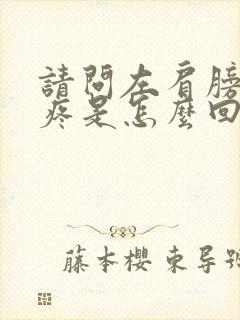 請問左肩膀
疼是怎麼回
藤本櫻 東导號